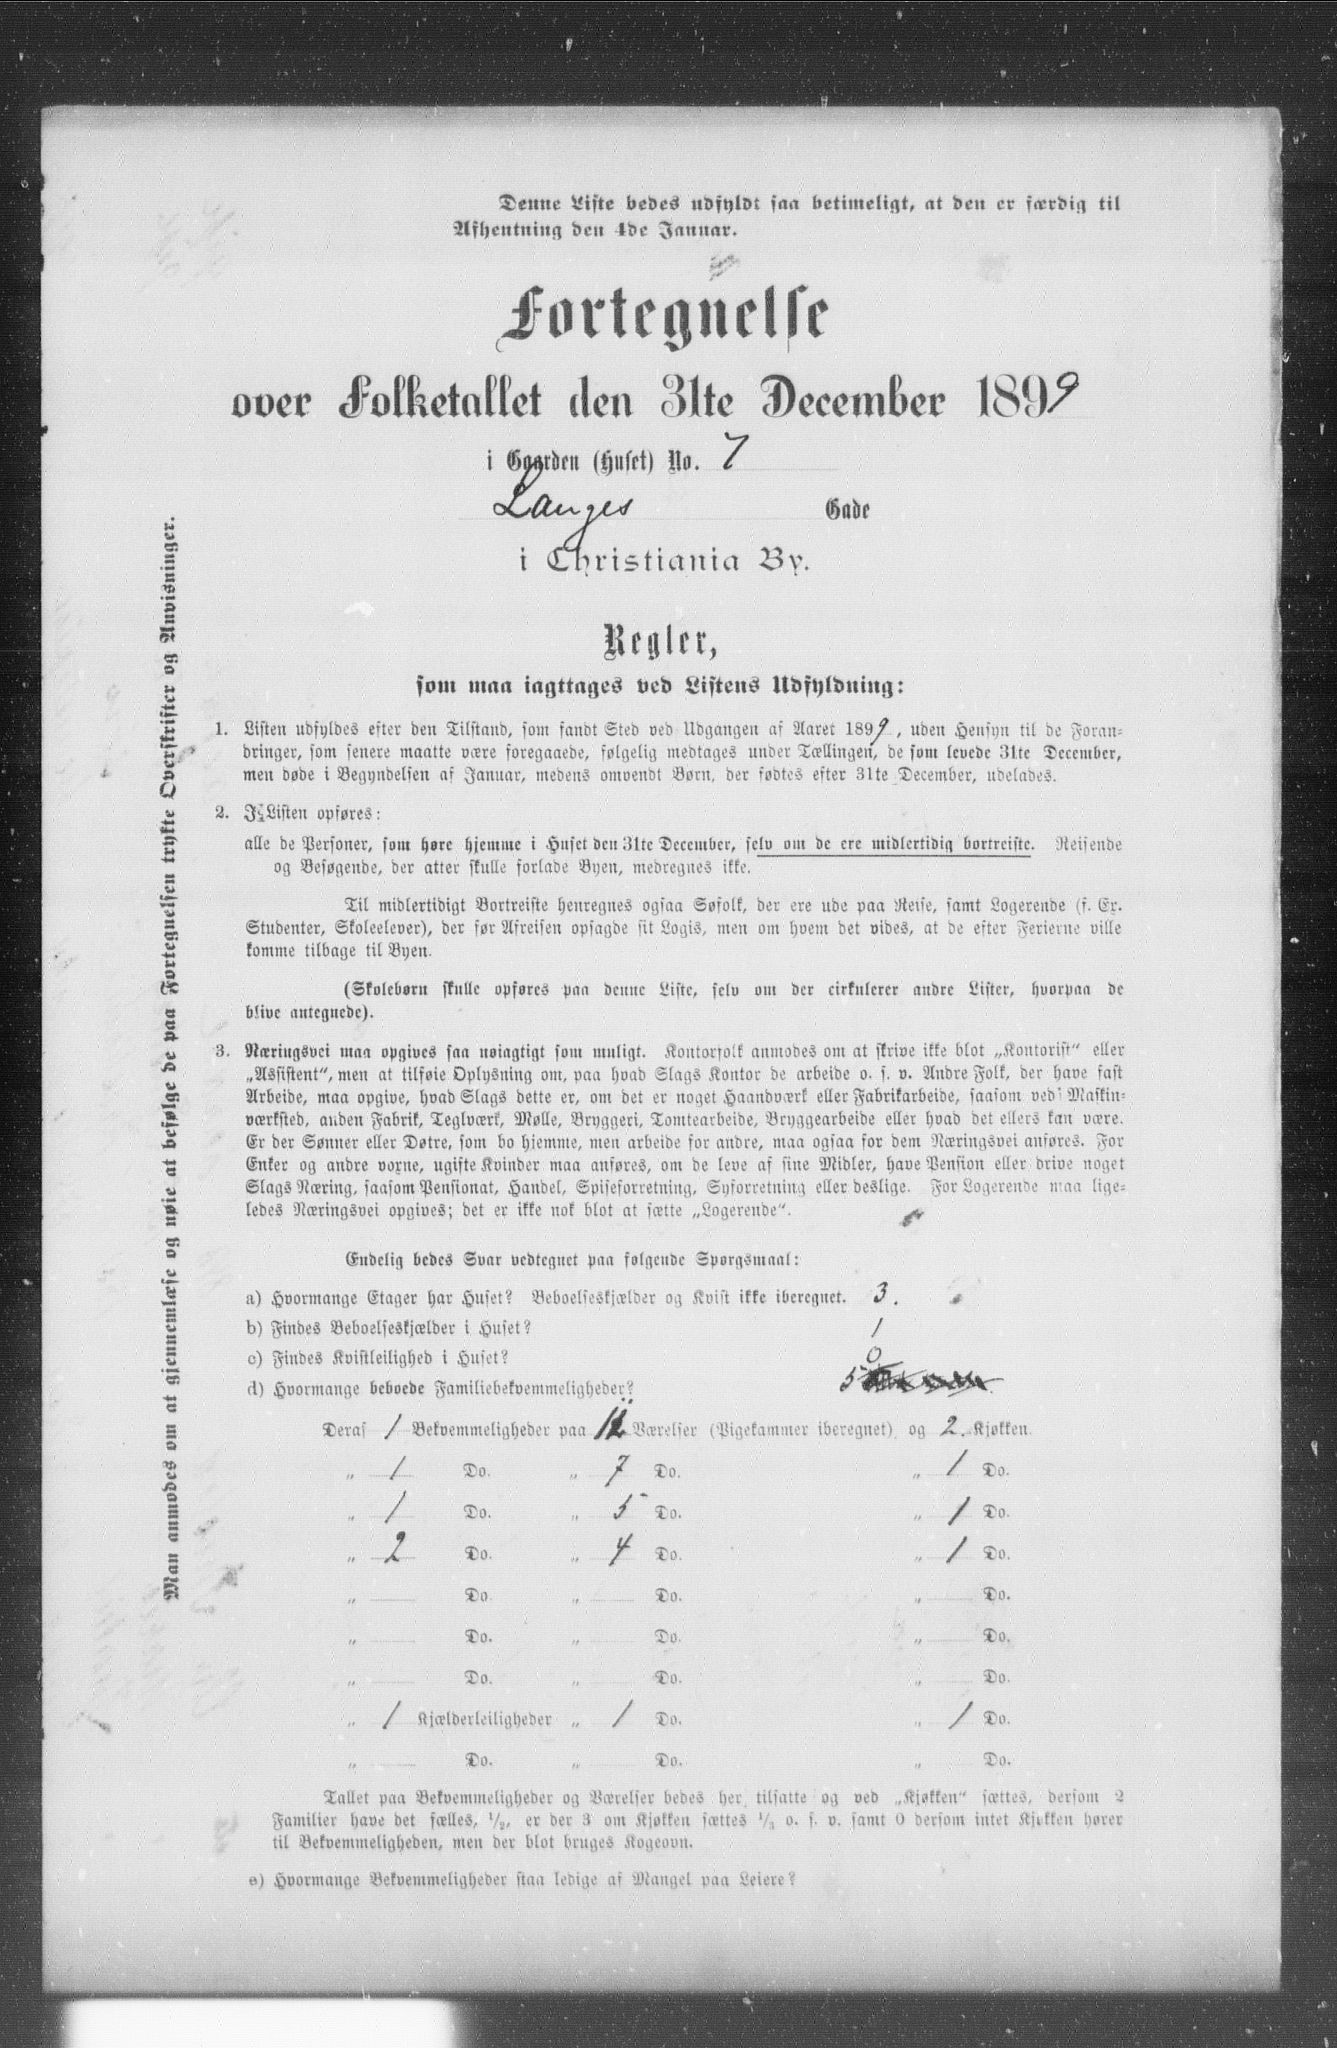 Denne Liste bedes udfyldt saa betimeligt, at den er færdig til
Afhentning den 4de Januar.
Fortegnelse
over Folketallet den 31te December 1899
i Gaarden (Huset) No. 7
Langes Gade
i Christiania By.
Regler,
som maa iagttages ved Listens Udfyldning:
1. Listen udfyldes efter den Tilstand, som fandt Sted ved Udgangen af Aaret 1899, uden Hensyn til de Foran-
dringer, som senere maatte være foregaaede, følgelig medtages under Tællingen, de som levede 31te December,
men døde i Begyndelsen af Januar, medens omvendt Børn, der fødtes efter 31te December, udelades.
2. I Listen opføres:
alle de Personer, som høre hjemme i Huset den 31te December, selv om de ere midlertidig bortreiste. Reisende
og Besøgende, der atter skulle forlade Byen, medregnes ikke.
Til midlertidigt Bortreiste henregnes ogsaa Søfolk, der ere ude paa Reise, samt Logerende (f. Ex.
Studenter, Skoleelever), der før Afreisen opsagde sit Logis, men om hvem det vides, at de efter Ferierne ville
komme tilbage til Byen.
(Skolebørn skulle opføres paa denne Liste, selv om der cirkulerer andre Lister, hvorpaa de
blive antegnede).
3. Næringsvei maa opgives saa nøiagtigt som muligt. Kontorfolk anmodes om at skrive ikke blot „Kontorist“ eller
„Assistent“, men at tilføie Oplysning om, paa hvad Slags Kontor de arbeide o. s. v. Andre Folk, der have fast
Arbeide, maa opgive, hvad Slags dette er, om det er noget Haandværk eller Fabrikarbeide, saasom ved Maskin-
værksted, anden Fabrik, Teglværk, Mølle, Bryggeri, Tomtearbeide, Bryggearbeide eller hvad det ellers kan være.
Er der Sønner eller Døtre, som bo hjemme, men arbeide for andre, maa ogsaa for dem Næringsvei anføres. For
Enker og andre voxne, ugifte Kvinder maa anføres, om de leve af sine Midler, have Pension eller drive noget
Slags Næring, saasom Pensionat, Handel, Spiseforretning, Syforretning eller deslige. For Logerende maa lige-
ledes Næringsvei opgives; det er ikke nok blot at sætte „Logerende“.
Endelig bedes Svar vedtegnet paa følgende Spørgsmaal:
a) Hvormange Etager har Huset? Beboelseskjælder og Kvist ikke iberegnet. 3.
b) Findes Beboelseskjælder i Huset? 1
c) Findes Kvistleilighed i Huset? 0
d) Hvormange beboede Familiebekvemmeligheder? 5
Deraf 1 Bekvemmeligheder paa Værelser (Pigekammer iberegnet) og 2. Kjøkken.
„ 1 Do. „ 7 Do. „ 1 Do.
„ 1 Do. „ 5 Do. „ 1 Do.
„ 2 Do. „ 4 Do. „ 1 Do.
„ Do. „ Do. „ Do.
„ Do. „ Do. „ Do.
„ Do. „ Do. „ Do.
„ 1 Kjælderleiligheder „ 1 Do. „ 1 Do.
„ Do. „ Do. „ Do.
Tallet paa Bekvemmeligheder og Værelser bedes her tilsatte og ved „Kjøkken“ sættes, dersom 2
Familier have det fælles, 1/2, er der 3 om Kjøkken sættes 1/3 o. s. v. samt 0 dersom intet Kjøkken hører
til Bekvemmeligheden, men der blot bruges Kogeovn.
e) Hvormange Bekvemmeligheder staa ledige af Mangel paa Leiere?
Man anmodes om at gjennemlæse og nøie at befølge de paa Fortegnelsen trykte Overskrifter og Anvisninger.